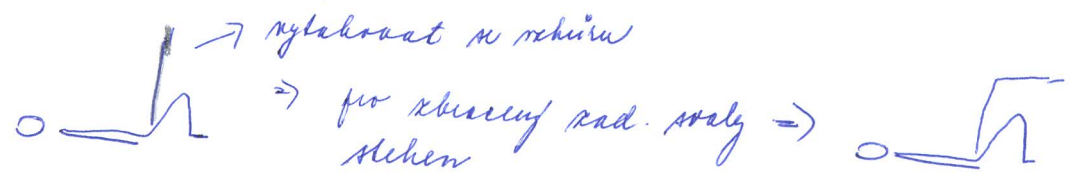 → vytahovat se vzhůru
⇒ pro zkrácený zad. svaly ⇒
stehen